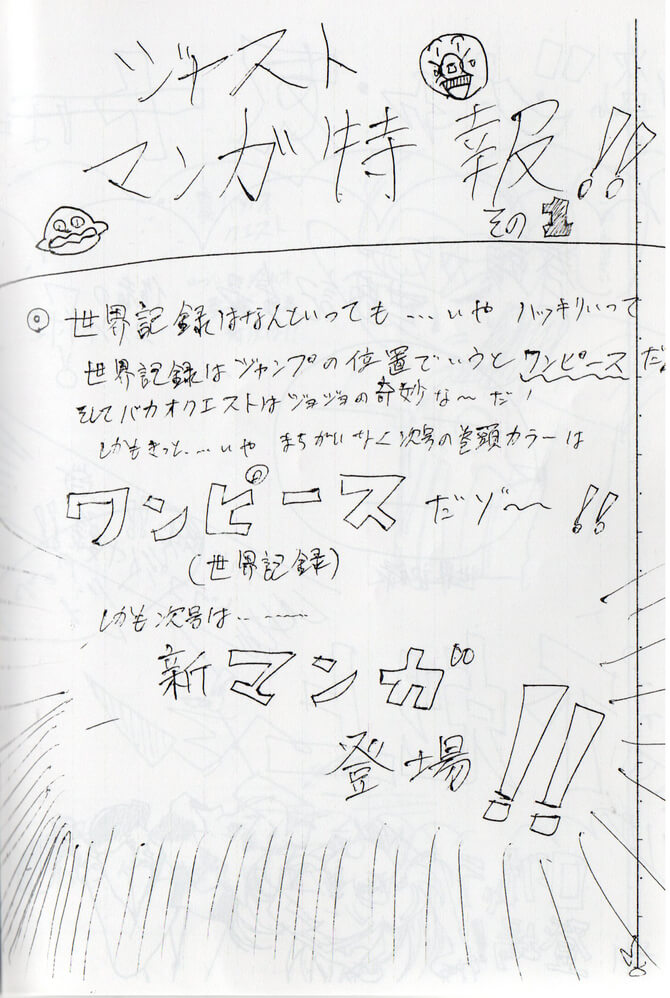 ジャスト
マンガ特報!!
その1
世界記録はなんといっても……いや ハッキリいって
世界記録はジャンプの位置でいうとワンピースだ
そしてバカオクエストはジョジョの奇妙な〜だ!
しかもきっと……いや まちがいなく次号の巻頭カラーは
ワンピースだゾ〜〜!!
(世界記録)
しかも次号は……
新マンガ
登場!!